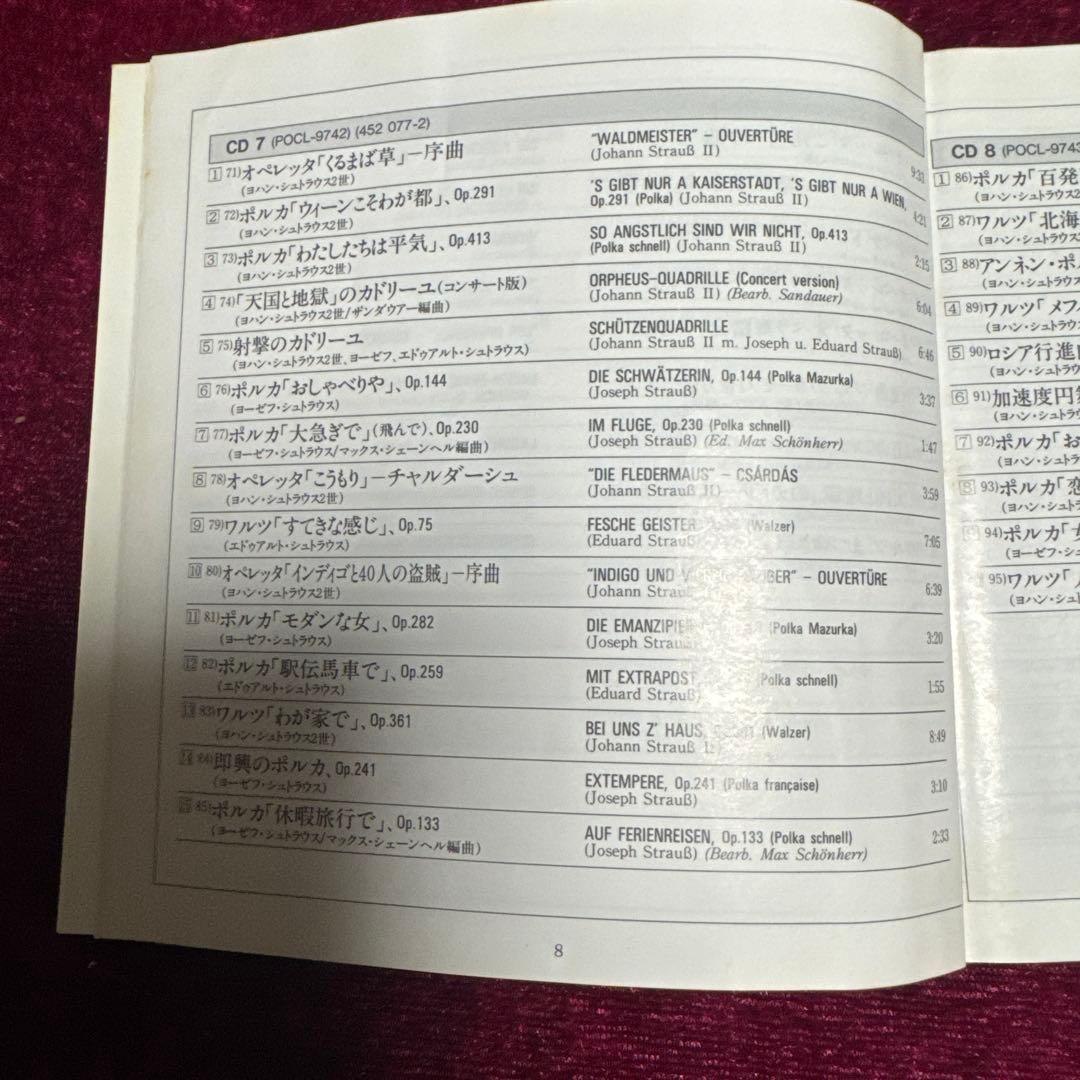 CD 7 (POCL-9742) (452 077-2)
1 71)オペレッタ「くるまば草」－序曲
(ヨハン・シュトラウス2世)
"WALDMEISTER" – OUVERTÜRE
(Johann Strauß II)
9:33
2 72)ポルカ「ウィーンこそわが都」、Op.291
(ヨハン・シュトラウス2世)
'S GIBT NUR A KAISERSTADT, 'S GIBT NUR A WIEN,
Op.291 (Polka) (Johann Strauß II)
4:21
3 73)ポルカ「わたしたちは平気」、Op.413
(ヨハン・シュトラウス2世)
SO ANGSTLICH SIND WIR NICHT, Op.413
(Polka schnell) (Johann Strauß II)
2:15
4 74)「天国と地獄」のカドリーユ(コンサート版)
(ヨハン・シュトラウス2世/ザンダウアー編曲)
ORPHEUS-QUADRILLE (Concert version)
(Johann Strauß II) (Bearb. Sandauer)
6:04
5 75)射撃のカドリーユ
(ヨハン・シュトラウス2世、ヨーゼフ、エドゥアルト・シュトラウス)
SCHÜTZENQUADRILLE
(Johann Strauß II m. Joseph u. Eduard Strauß)
6:46
6 76)ポルカ「おしゃべりや」、Op.144
(ヨーゼフ・シュトラウス)
DIE SCHWÄTZERIN, Op.144 (Polka Mazurka)
(Joseph Strauß)
3:37
7 77)ポルカ「大急ぎで」(飛んで)、Op.230
(ヨーゼフ・シュトラウス/マックス・シェーンヘル編曲)
IM FLUGE, Op.230 (Polka schnell)
(Joseph Strauß) (Ed. Max Schönherr)
1:47
8 78)オペレッタ「こうもり」－チャルダーシュ
(ヨハン・シュトラウス2世)
"DIE FLEDERMAUS" – CSÁRDÁS
(Johann Strauß II)
3:59
9 79)ワルツ「すてきな感じ」、Op.75
(エドゥアルト・シュトラウス)
FESCHE GEISTER, (Walzer)
(Eduard Strauß)
7:05
10 80)オペレッタ「インディゴと40人の盗賊」－序曲
(ヨハン・シュトラウス2世)
"INDIGO UND – OUVERTÜRE
(Johann
6:39
11 81)ポルカ「モダンな女」、Op.282
(ヨーゼフ・シュトラウス)
DIE (Polka Mazurka)
(Joseph Strauß)
3:20
12 82)ポルカ「駅伝馬車で」、Op.259
(エドゥアルト・シュトラウス)
MIT EXTRAPOST, (Polka schnell)
(Eduard Strauß)
1:55
13 83)ワルツ「わが家で」、Op.361
(ヨハン・シュトラウス2世)
BEI UNS Z' HAUS, (Walzer)
(Johann Strauß
8:49
14 84)即興のポルカ、Op.241
(ヨーゼフ・シュトラウス)
EXTEMPERE, Op.241 (Polka française)
(Joseph Strauß)
3:10
15 85)ポルカ「休暇旅行で」、Op.133
(ヨーゼフ・シュトラウス/マックス・シェーンヘル編曲)
AUF FERIENREISEN, Op.133 (Polka schnell)
(Joseph Strauß) (Bearb. Max Schönherr)
2:33
8
CD 8 (POCL-9743
1 86)ポルカ「百発
(ヨハン・シュトラウス2
2 87)ワルツ「北海
(ヨハン・シュトラウス
3 88)アンネン・ポル
(ヨハン・シュトラウス
4 89)ワルツ「メフ
(ヨハン・シュトラウス
5 90)ロシア行進
(ヨハン・シュトラ
6 91)加速度円
(ヨハン・シュトラ
7 92)ポルカ「お
(ヨハン・シュトラ
8 93)ポルカ「恋
(ヨハン・シュト
94)ポルカ「女
(ヨーゼフ・シ
95)ワルツ「
(ヨハン・シュ